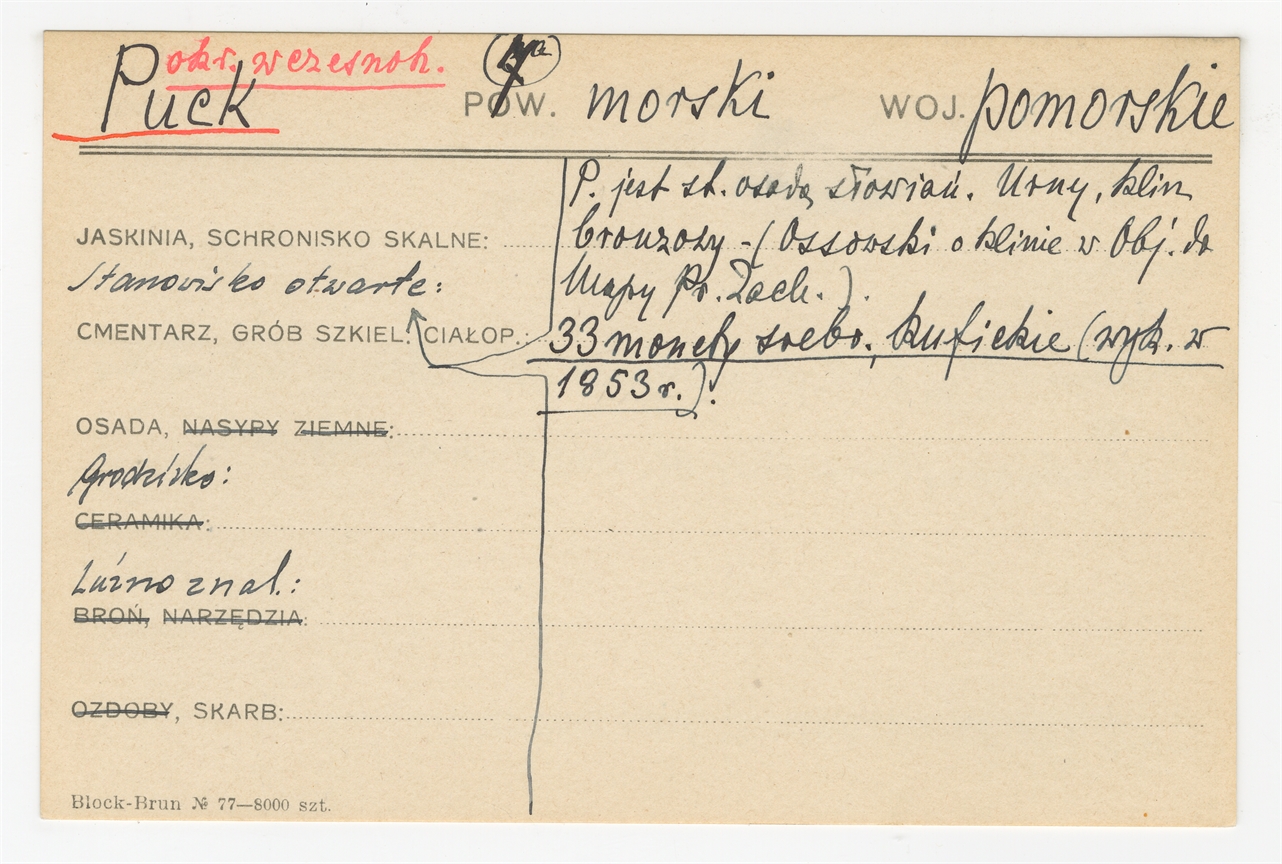 okr. wczesnoh.
Puck POW. morski WOJ. pomorskie
P. jest st. osadą słowiań. Urny, klin
JASKINIA, SCHRONISKO SKALNE: bronzowy - (Ossowski o klinie w Obj. do
Stanowisko otwarte: Mapy Pr. Zach.).
CMENTARZ, GRÓB SZKIEL. CIAŁOP.: 33 monety srebr. kufickie (wyk. w
1853 r.).
OSADA, NASYPY ZIEMNE:
Grodzisko:
CERAMIKA:
Luźno znal.:
BROŃ, NARZĘDZIA:
OZDOBY, SKARB:
Block-Brun № 77—8000 szt.